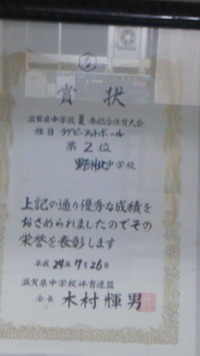 賞状
滋賀県中学校夏季総合体育大会
種目 ラグビーフットボール
第2位
野洲北中学校
上記の通り優秀な成績を
おさめられましたのでその
栄誉を表彰します
平成 24年7月26日
滋賀県中学校体育連盟
会長 木村輝男